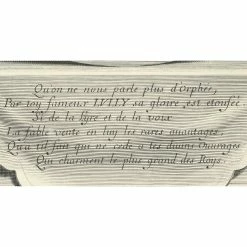 Qu'on ne nous parle plus d'Orphée,
Par toy fameux LVLLY sa gloire est etoufée
Si de la Lyre et de la voix
La fable vente en luy les rares auantages,
Qu'a til fait qui ne cede a tes diuins Ouurages
Qui charment le plus grand des Roys.